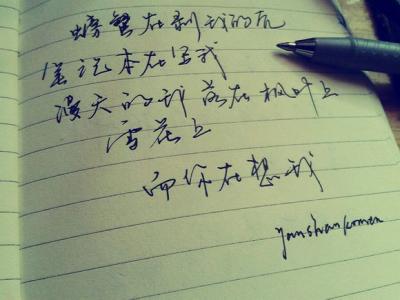 螃蟹在剥我的壳
笔记本在写我
漫天的我落在枫叶上
雪花上
而你在想我